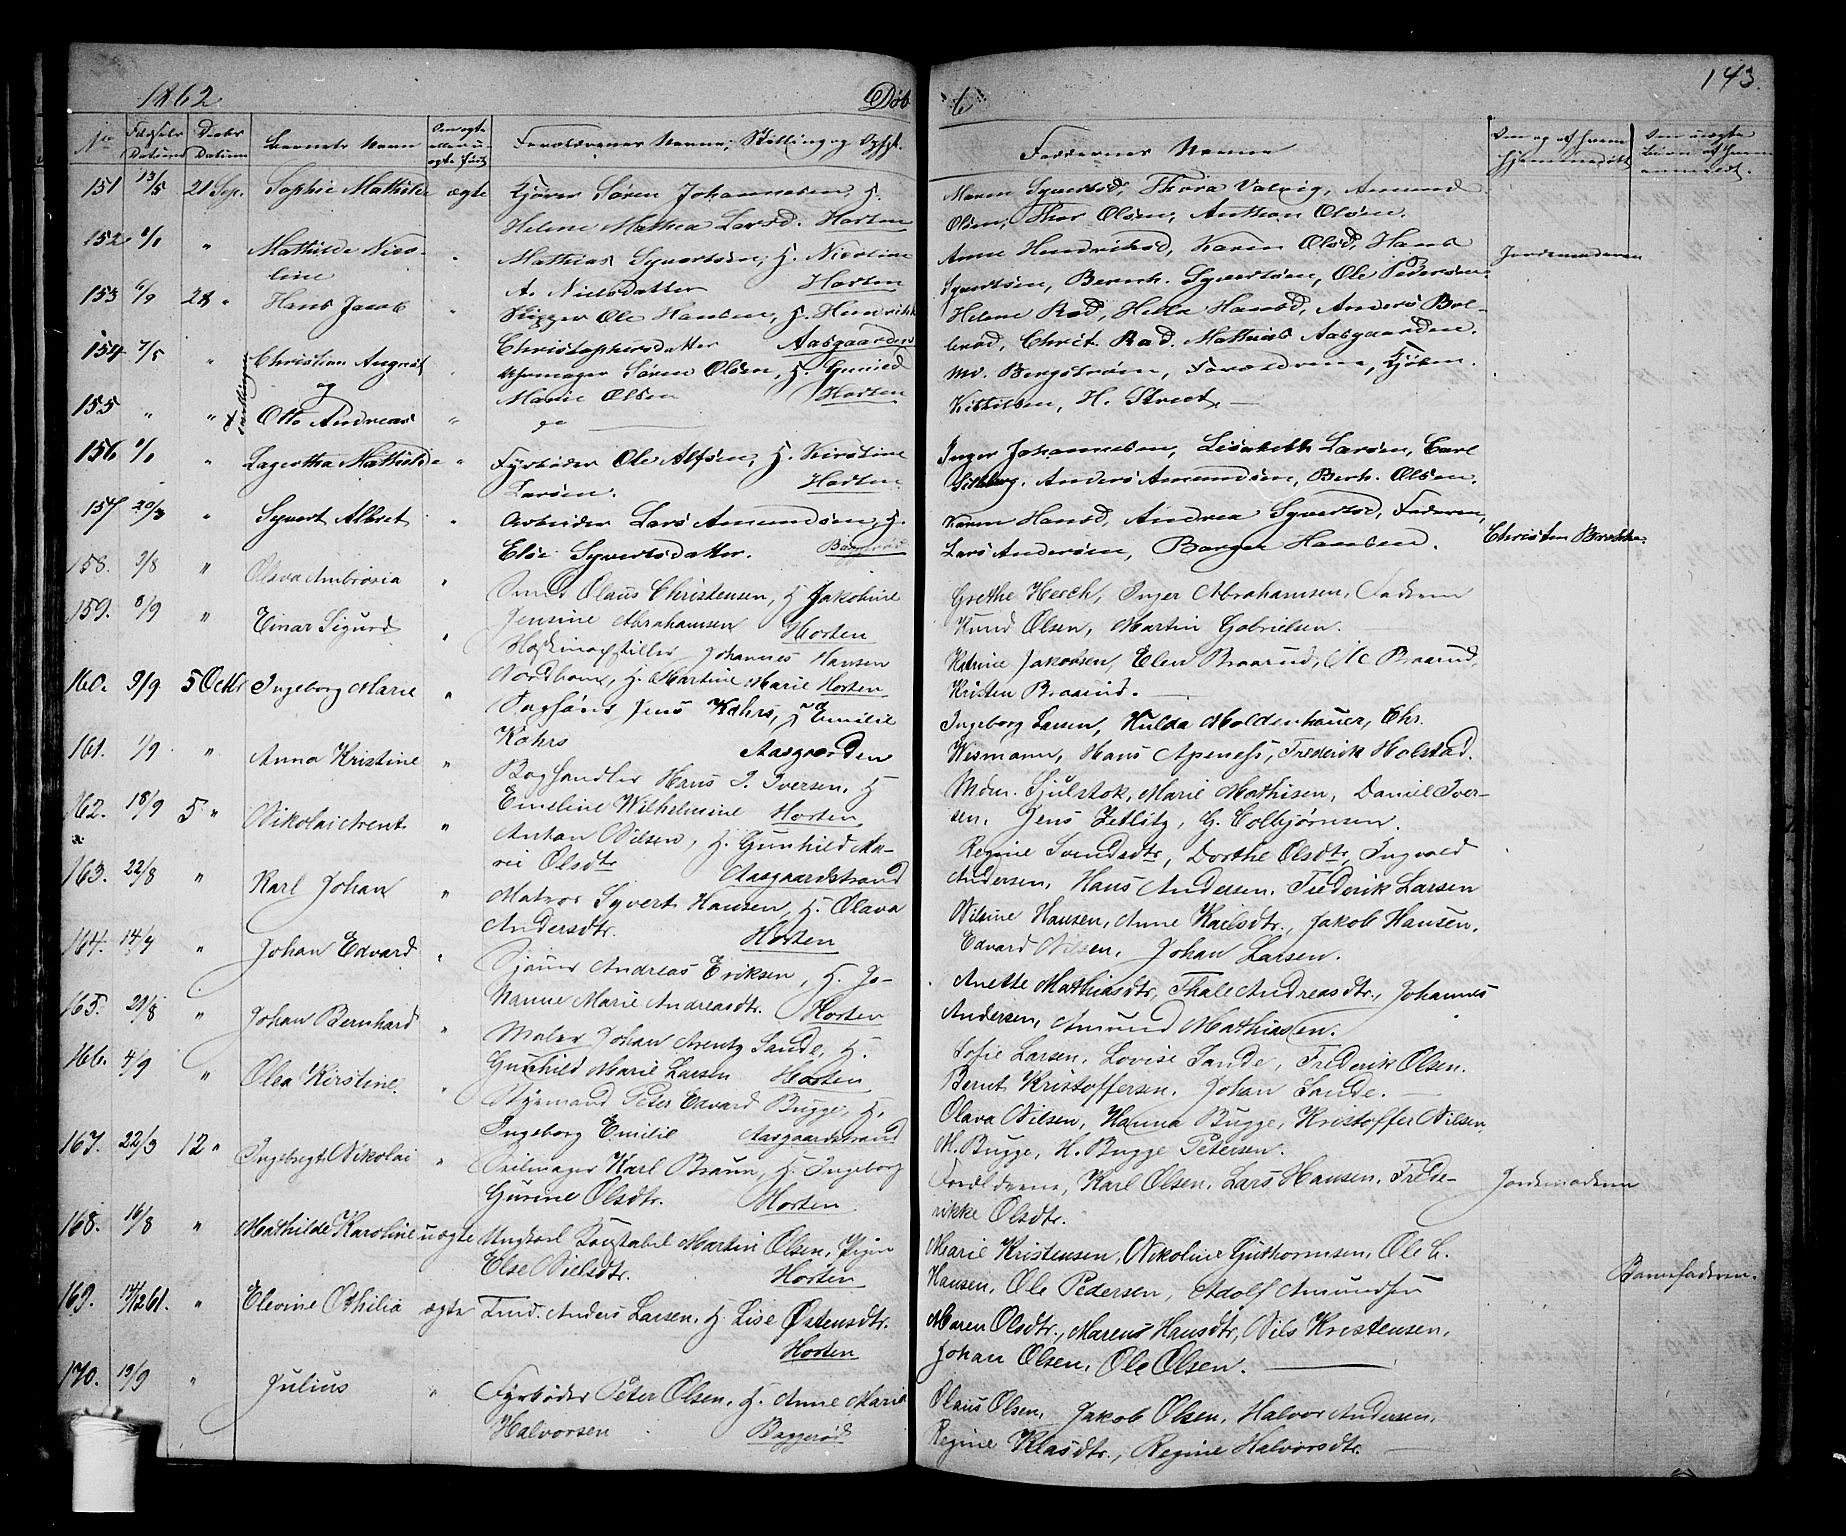 1862 Døb 143.
No Fødsels Datum Daabs Datum Barnets Navn Om ægte eller uægte født Forældrenes Navne, Stilling og Opht. Faddernes Navne
151 13/5 21 Sep. Sophie Mathilde ægte Søren Johannesen, H. Maren Syvertsd, Thora Valvig, Amund
Helene Mathea Larsd. Horten Olsen, Thor Olsen, Anthon Olsen.
152 " Mathilde Nico- " Mathias Syvertsen, H. Nicoline Anne Hendriksd, Karen Olsd, Hans Jordemoderen
line A. Nielsdatter Horten Syvertsen, Bernh. Syvertsen, Ole Pedersen
153 28 " Hans Jacob " Skipper Ole Hansen, H. Hendrikke Helene Rød, Helle Hansd, Anders Bol-
Christophersdatter Aasgaarden Christ. Rød. Mathias Aasgaarden.
154 7/5 " Christian August " Uhrmager Søren Olsen, H. Gunild Bergstrøm, Forældrene,
og Marie Olsen Horten H. Street
155 " " Otto Andreas "
Tvillinger
156 " Lagertha Mathilde " Fyrbøder Ole Alfsen, H. Kirstine Inger Johannesen, Lisabeth Larsen, Carl
Larsen. Horten Anders Amundsen, Bernh. Olsen.
157 20/3 " Syvert Albret " Arbeider Lars Amundsen, H. Karen Hansd, Andrea Syvertsd, Faderen,
Else Syvertsdatter. Baggerød Lars Andersen, Børger Hansen. Christen
158. 3/8 " Olava Ambrosia " Olaus Christensen, H. Jakobine Grethe Hesch, Inger Abrahamsen, Faderen
Jensine Abrahamsen Horten Knud Olsen, Martin Gabrielsen.
159. 8/9 " Einar Sigurd " Johannes Hansen Katrine Jakobsen, Elen Braarud, Braarud,
Nordbom, H. Martine Marie Horten Kristen Braarud.
160. 9/9 5 Octbr Ingeborg Marie " Jens Kohrs, H. Emilie Ingeborg Larsen, Hulda Moldenhauer, Chr.
Kohrs Aasgaarden Wismann, Hans Apenæs, Frederik Holstad.
161. 1/9 " Anna Kristine " Boghandler Hans J. Iversen, H Mdm. Sjulstok, Marie Mathisen, Daniel Iver-
Emeline Wilhelmine Horten sen, Jens Zetlitz, G. Colbjørnsen.
162. 18/9 5 " Nikolai Arent " Anton Nilsen, H. Gunhild Ma- Regine Svendsdtr, Dorthe Olsdtr, Ingvald
rie Olsdtr Aasgaardstrand Andersen, Hans Andersen, Frederik Larsen
163. 22/8 " Karl Johan " Matros Syvert Hansen, H. Olava Nilsine Hansen, Anne Karlsdtr, Jakob Hansen,
Andersdtr. Horten Edvard Nilsen, Johan Larsen.
164. " Johan Edvard " Andreas Eriksen, H. Jo- Anette Mathiasdtr, Thale Andreasdtr., Johannes
hanne Marie Andreasdtr. Horten Andersen, Amund Mathiassen.
165. 21/8 " Johan Bernhard " Maler Johan Arentz Sande, H. Sofie Larsen, Lovise Sande, Frederik Olsen.
Gunhild Marie Larsen Horten Bernt Kristoffersen, Johan Sande.
166. 4/9 " Olea Kirstine " Styrmand Peter Edvard Bugge, H. Olava Nilsen, Hanna Bugge, Kristoffer Nilsen,
Ingeborg Emilie Aasgaardstrand M. Bugge, H. Bugge Petersen.
167. 22/3 12 " Ingebregt Nikolai " Seilmager Karl Braun, H. Ingeborg Forældrene, Karl Olsen, Lars Hansen, Frede- Jordemoderen
Gurine Olsdtr. Horten rikke Olsdtr.
168. 16/8 " Mathilde Karoline uægte Ungkarl Konstabel Martin Olsen, Pigen Marie Kristensen, Nikoline Guthormsen, Ole C. Barnefaderen.
Else Nielsdtr. Horten Hansen, Ole Pedersen, Adolf Amundsen
169. 14/12 61. " Elevine Othilia ægte Anders Larsen, H. Lise Østensdtr. Maren Olsdtr., Maren Hansdtr, Nils Kristensen,
Horten Johan Olsen, Ole Olsen.
170. 13/9 " Julius " Fyrbøder Peter Olsen, H. Anne Marie Olaus Olsen, Jakob Olsen, Halvor Andersen,
Halvorsen Baggerød Regine Klasdtr., Regine Halvorsdtr.